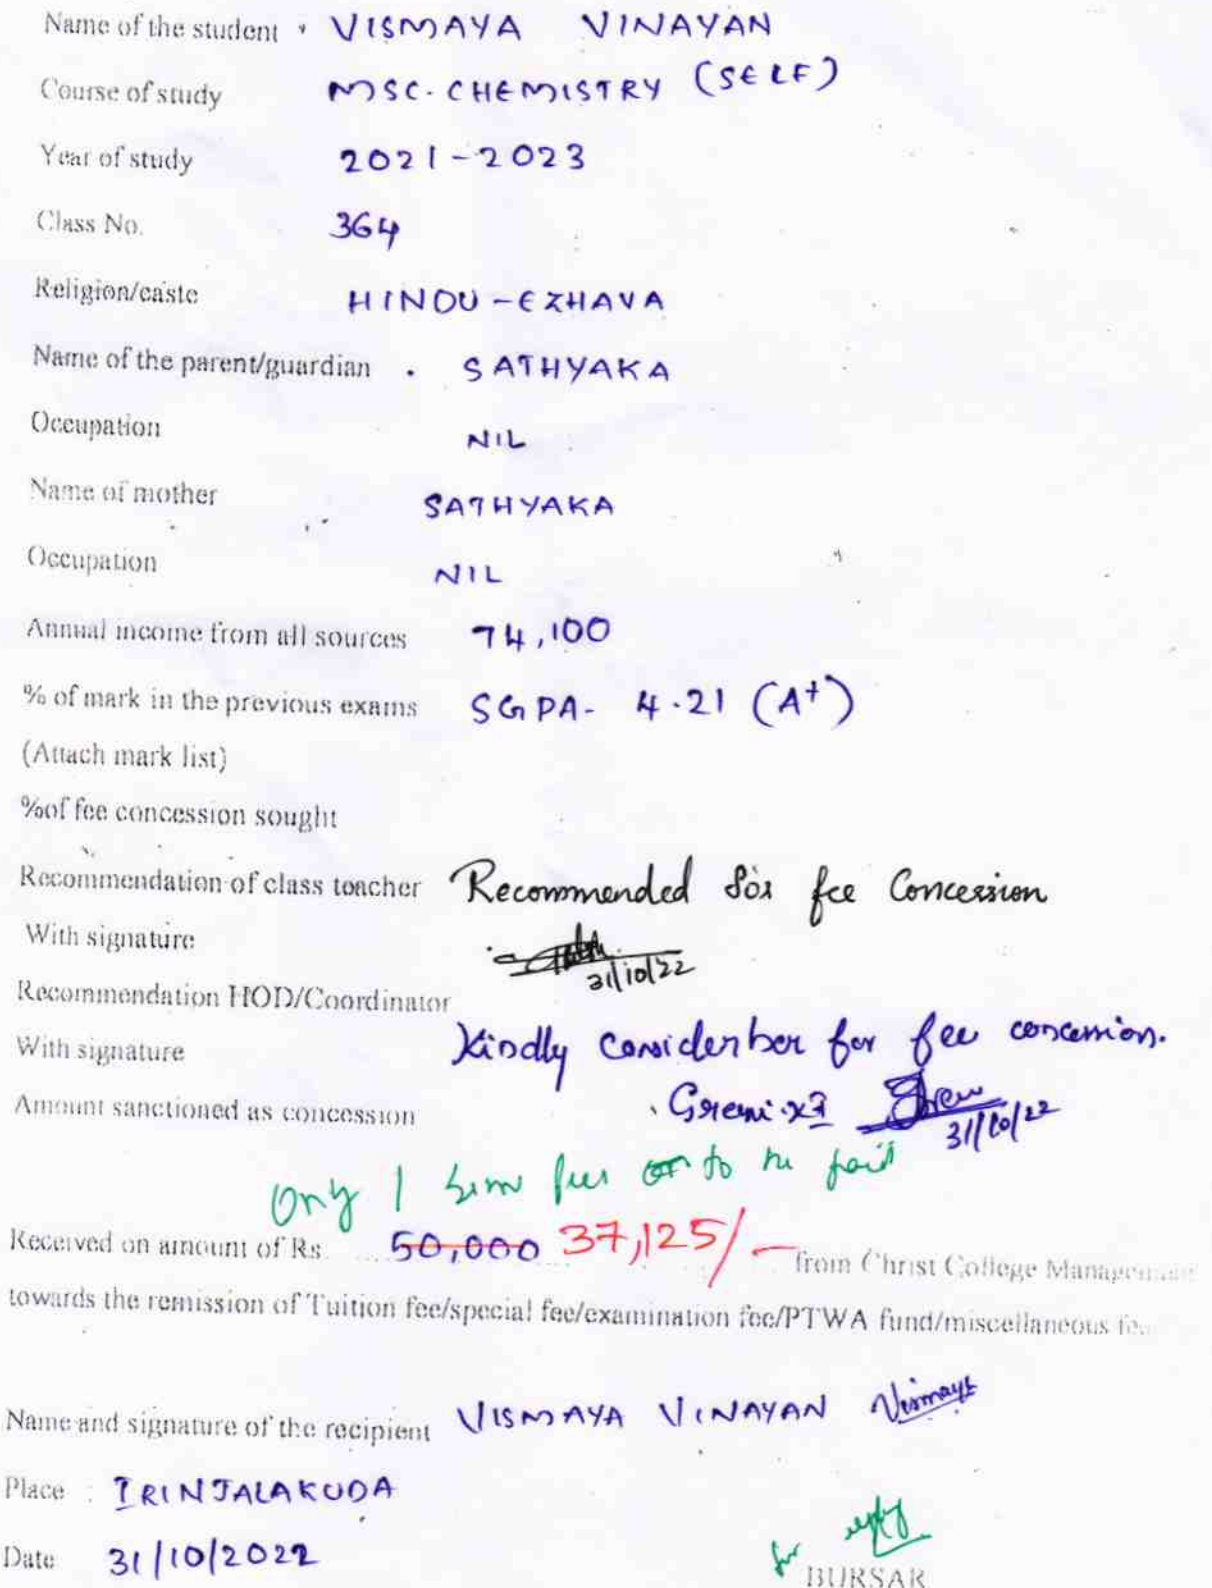 Name of the student VISMAYA VINAYAN
Course of study MSC. CHEMISTRY (SELF)
Year of study 2021-2023
Class No. 364
Religion/caste HINDU - EZHAVA
Name of the parent/guardian . SATHYAKA
Occupation NIL
Name of mother SATHYAKA
Occupation NIL
Annual income from all sources 74,100
% of mark in the previous exams SGPA- 4.21 (A+)
(Attach mark list)
%of fee concession sought
Recommendation of class teacher Recommended for fee Concession
With signature
31/10/22
Recommendation HOD/Coordinator
With signature Kindly consider her for fee concession.
Amount sanctioned as concession
31/10/22
Only 1 sem fees to be paid
Received on amount of Rs. 50,000 37,125/- from Christ College Management
towards the remission of Tuition fee/special fee/examination fee/PTWA fund/miscellaneous fee
Name and signature of the recipient VISMAYA VINAYAN Vismaya
Place : IRINJALAKUDA
Date 31/10/2022
for
BURSAR